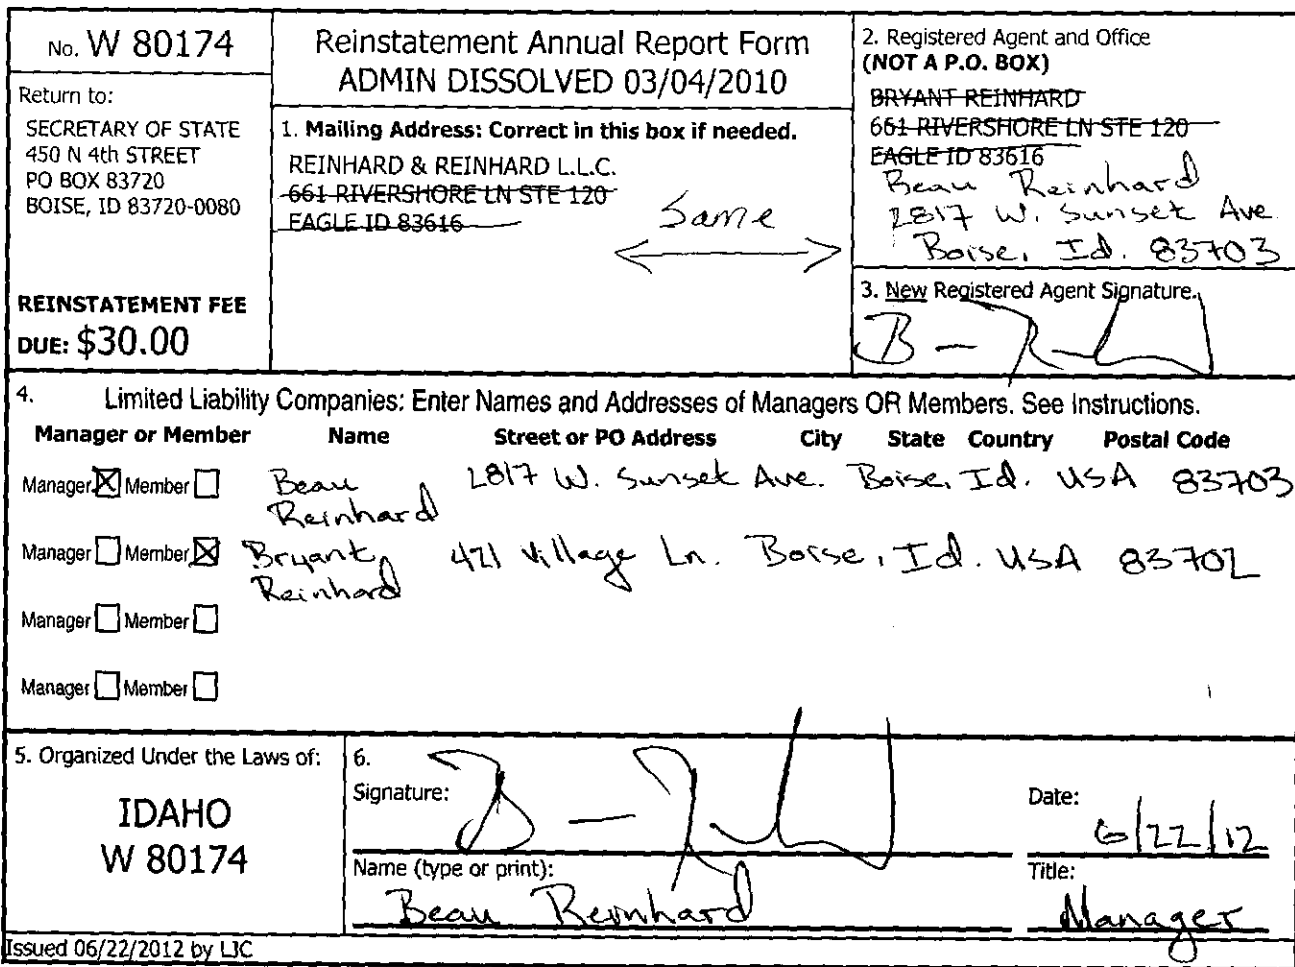 No. W 80174
Return to:
SECRETARY OF STATE
450 N 4th STREET
PO BOX 83720
BOISE, ID 83720-0080
REINSTATEMENT FEE
DUE: $30.00
Reinstatement Annual Report Form
ADMIN DISSOLVED 03/04/2010
1. Mailing Address: Correct in this box if needed.
REINHARD & REINHARD L.L.C.
661 RIVERSHORE LN STE 120
EAGLE ID 83616
Same
2. Registered Agent and Office
(NOT A P.O. BOX)
BRYANT REINHARD
661 RIVERSHORE LN STE 120
EAGLE ID 83616
Beau Reinhard
2817 W. Sunset Ave
Boise, Id. 83703
3. New Registered Agent Signature.
4. Limited Liability Companies: Enter Names and Addresses of Managers OR Members. See Instructions.
Manager or Member Name Street or PO Address City State Country Postal Code
Manager Member Beau Reinhard 2817 W. Sunset Ave. Boise, Id. USA 83703
Manager Member Bryant Reinhard 421 Village Ln. Boise, Id. USA 83702
Manager Member
Manager Member
5. Organized Under the Laws of:
IDAHO
W 80174
6.
Signature:
Date:
6/22/12
Name (type or print):
Beau Reinhard
Title:
Manager
Issued 06/22/2012 by LJC